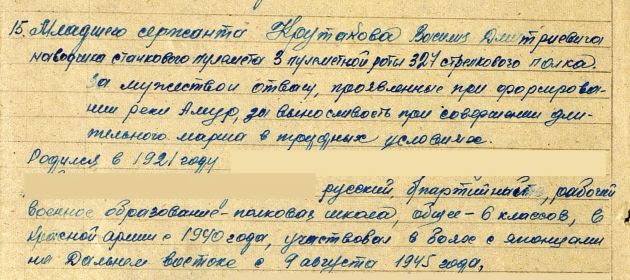 15. Младшего сержанта Крутакова Василия Дмитриевича
наводчика станкового пулемета 3 пулеметной роты 327 стрелкового полка.
За мужество и отвагу, проявленные при форсирова-
нии реки Амур, за выносливость при совершении дли-
тельного марша в трудных условиях.
Родился в 1921 году
русский, б/партийность, рабочий
военное образование - полковая школа, общее - 6 классов, в
Красной армии с 1940 года, участвовал в боях с японцами
на Дальнем востоке с 9 августа 1945 года,